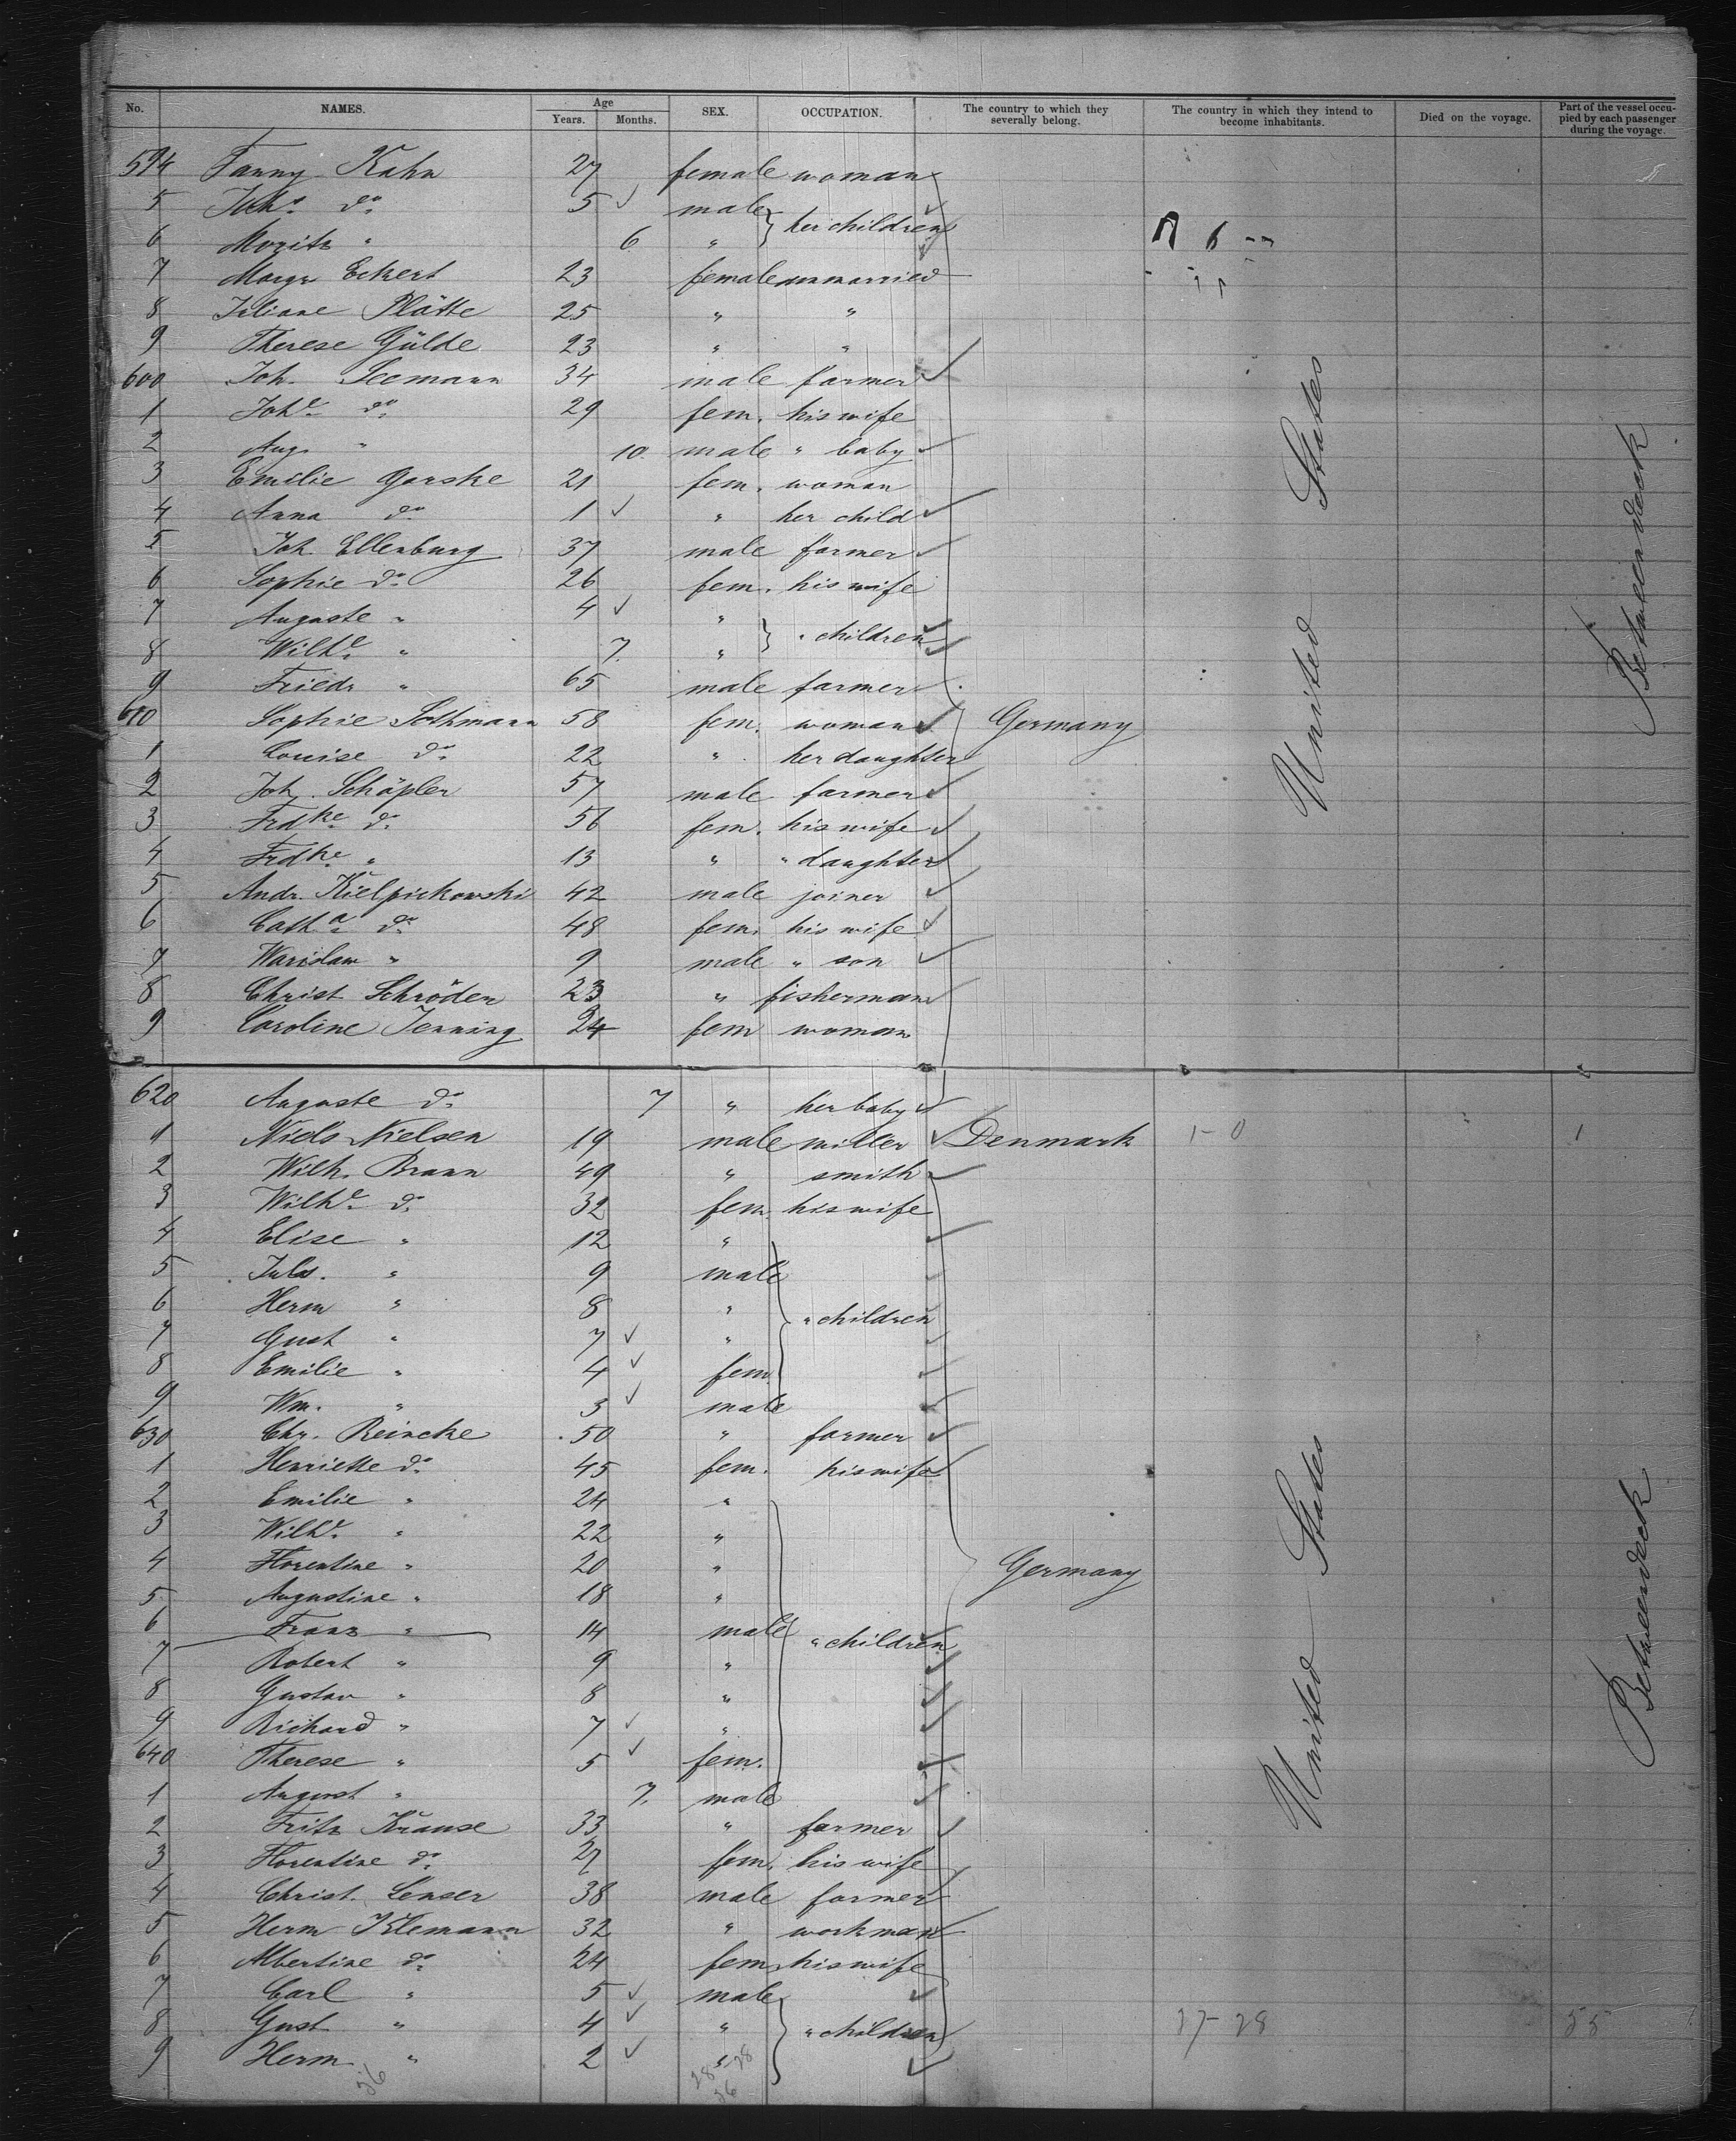 No. NAMES. Age Years. Months. SEX. OCCUPATION. The country to which they severally belong. The country in which they intend to become inhabitants. Died on the voyage. Part of the vessel occupied by each passenger during the voyage.
594 Fanny Kahn 27 female woman
5 do 5 ✓ male } her children ✓
6 Moritz " 6 " ✓
7 Margr Eckert 23 female unmarried
8 Juliane Plätte 25 " "
9 Therese Gülde 23 " "
600 Joh. Seemann 34 male farmer ✓
1 Johe do 29 fem. his wife
2 Aug. " 10. male " baby ✓
3 Emilie Garske 21 fem. woman
4 Anna do 1 ✓ " her child ✓
5 Joh Ellenburg 37 male farmer ✓
6 Sophie do 26 fem. his wife
7 Auguste " 4 ✓ " } " children ✓
8 Wilhe " 7. " ✓
9 Friedr " 65 male farmer ✓
610 Sophie Sothmann 58 fem. woman ✓ Germany United States Betweendeck
1 Louise do 22 " her daughter
2 Joh. Schäpler 57 male farmer ✓
3 Frdke do 56 fem. his wife ✓
4 Frdke " 13 " " daughter ✓
5 Andr. Kielpickowski 42 male joiner ✓
6 Catha do 48 fem. his wife ✓
7 " 9 male " son ✓
8 Christ Schröder 23 " fisherman ✓
9 Caroline Jenning 24 fem woman
620 Auguste do 7 " her baby ✓
1 Niels Nielsen 19 male miller ✓ Denmark 1-0 1
2 Wilh. Braun 49 " smith ✓
3 Wilhe do 32 fem. his wife
4 Elise " 12 " ✓
5 Juls. " 9 male ✓
6 Herm " 8 " } " children ✓
7 Gust " 7 ✓ " ✓
8 Emilie " 4 ✓ fem. ✓
9 Wm. " 3 ✓ male ✓
630 Chr. Reincke 50 " farmer ✓
1 Henriette do 45 fem. his wife
2 Emilie " 24 "
3 Wilhe " 22 "
4 Florentine " 20 " Germany United States Betweendeck
5 Augustine " 18 "
6 Franz " 14 male } " children ✓
7 Robert " 9 " ✓
8 Gustav " 8 " ✓
9 Richard " 7 ✓ " ✓
640 Therese " 5 ✓ fem. ✓
1 August " 7. male ✓
2 Fritz Krause 33 " farmer ✓
3 Florentine do 27 fem. his wife
4 Christ. Lenser 38 male farmer ✓
5 Herm Klemann 32 " workman ✓
6 Albertine do 24 fem. his wife
7 Carl " 5 ✓ male ✓
8 Gust " 4 ✓ " } " children ✓ 55
9 Herm " 2 ✓ " ✓